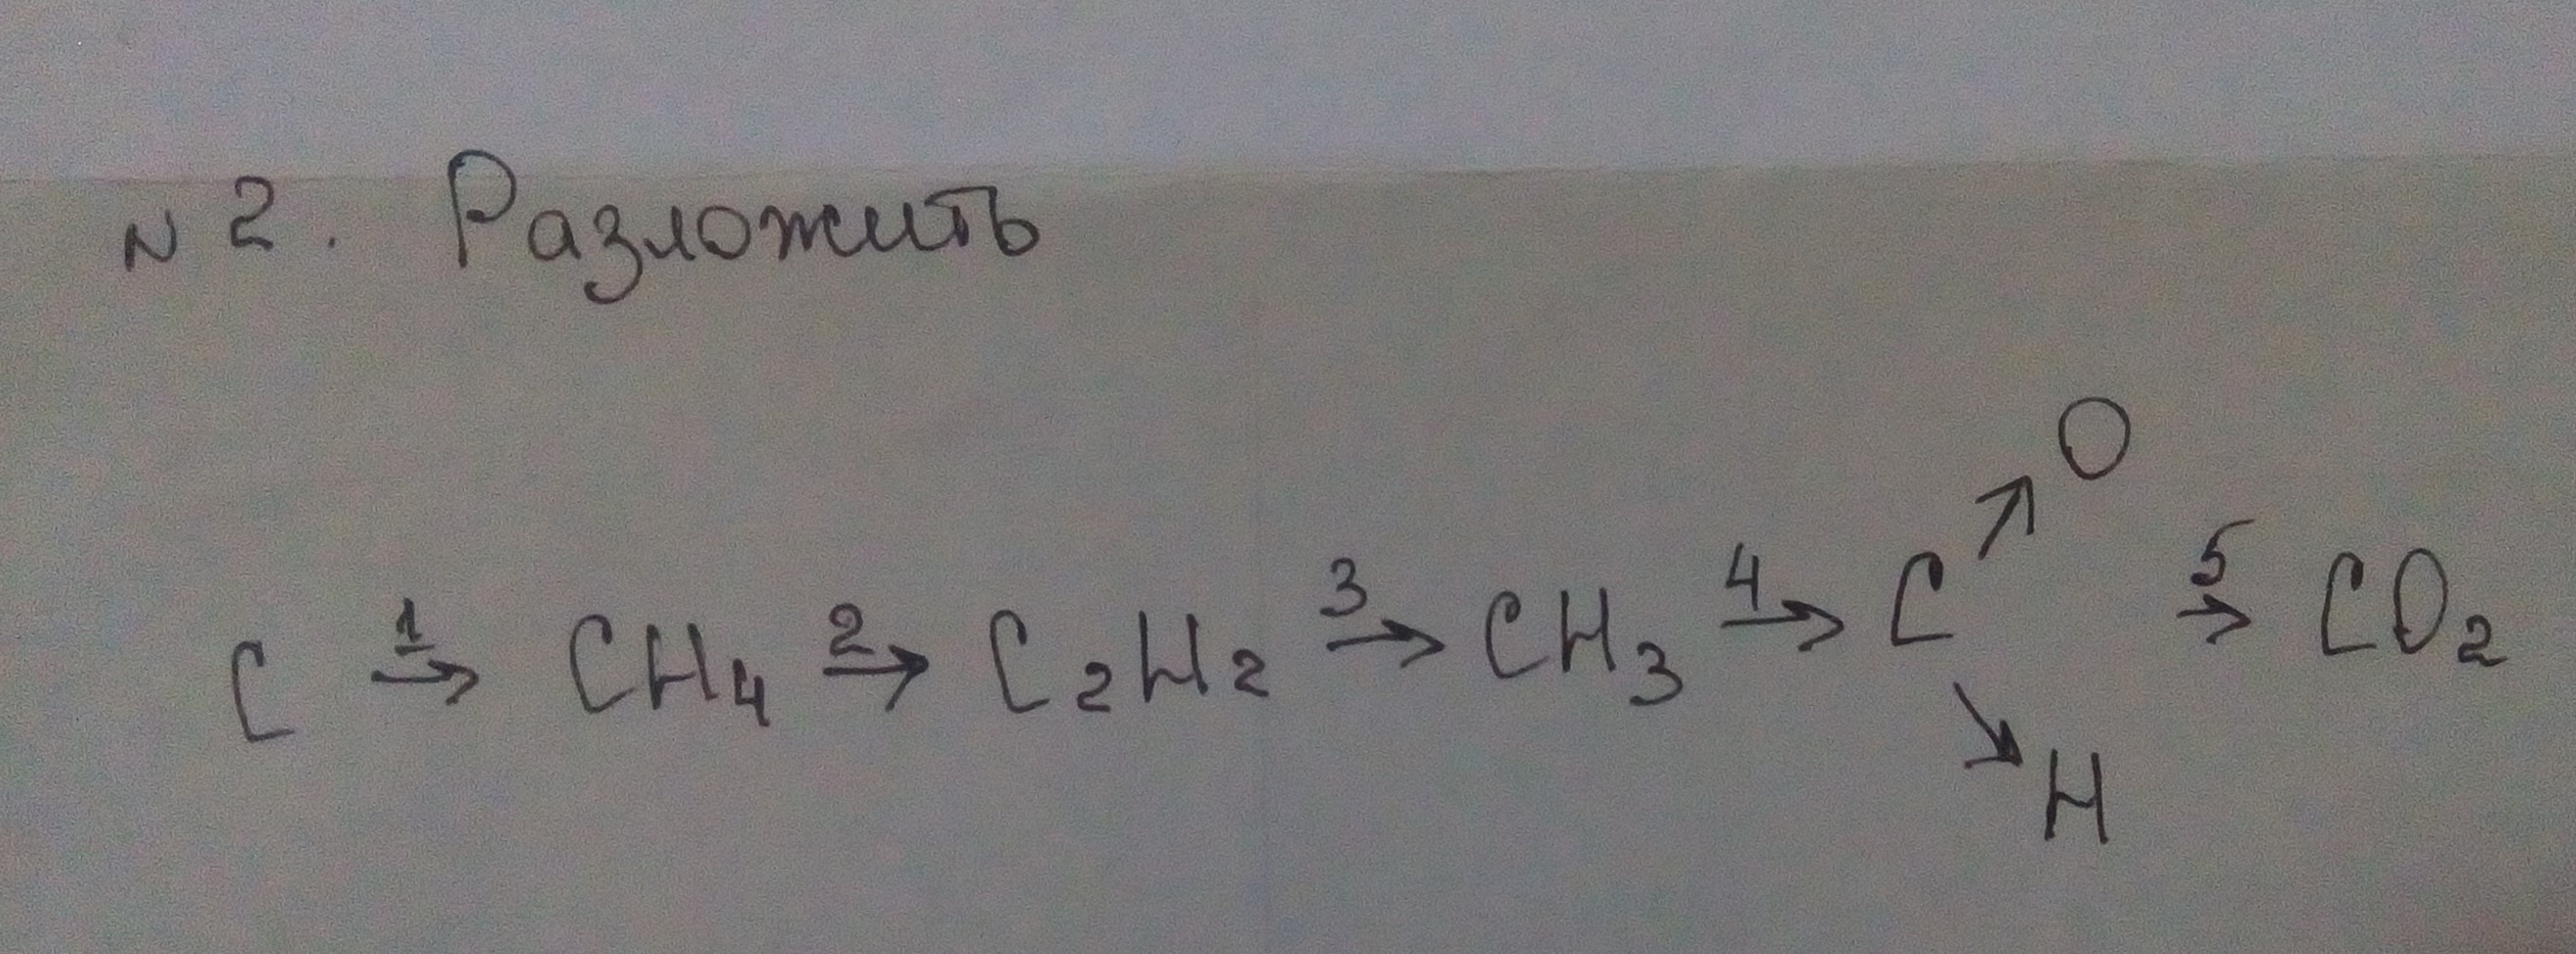 N 2. Разложить
O
C 1→ CH₄ 2→ C₂H₂ 3→ CH₃ 4→ C ↗ 5→ CO₂
↘ H